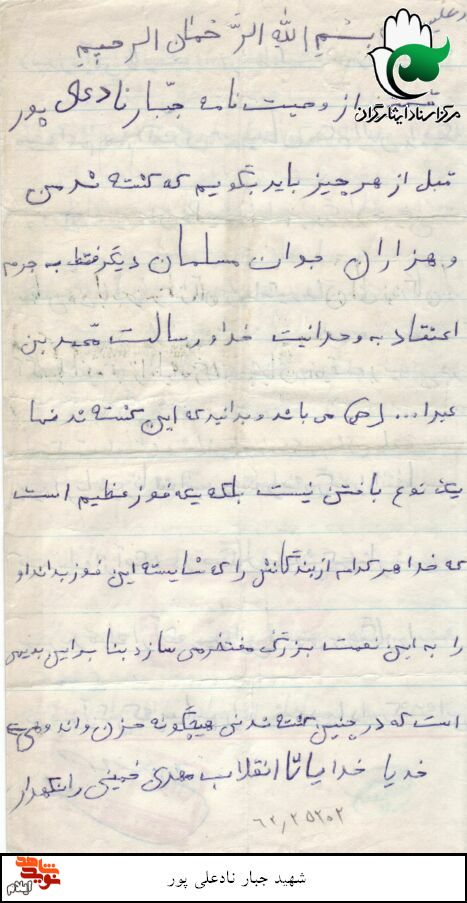 بسم الله الرّحمان الرحیم
مرکز اسناد ایثارگران
از وصیت نامه جبّار نادعلی پور
قبل از هر چیز باید بگویم که کشته شدن من
و هزاران جوان مسلمان دیگر فقط به جرم
اعتقاد به وحدانیت خدا و رسالت محّمد بن
عبدا... (ص) می باشد و بدانید که این کشته شدنها
یک نوع باختن نیست بلکه یک فوز عظیم است
که خدا هر کدام از بندگانش را که شایسته این فوز بداند او
را به این نعمت بزرگ مفتخر می سازد بنا براین بدیهی
است که در چنین کشته شدنی هیچگونه حزن و اندوهی
خدایا خدایا تا انقلاب مهدی خمینی را نگهدار
۶۲٫۲۵۲۰۲
شاهد
نوید
ایلام
شهید جبار نادعلی پور